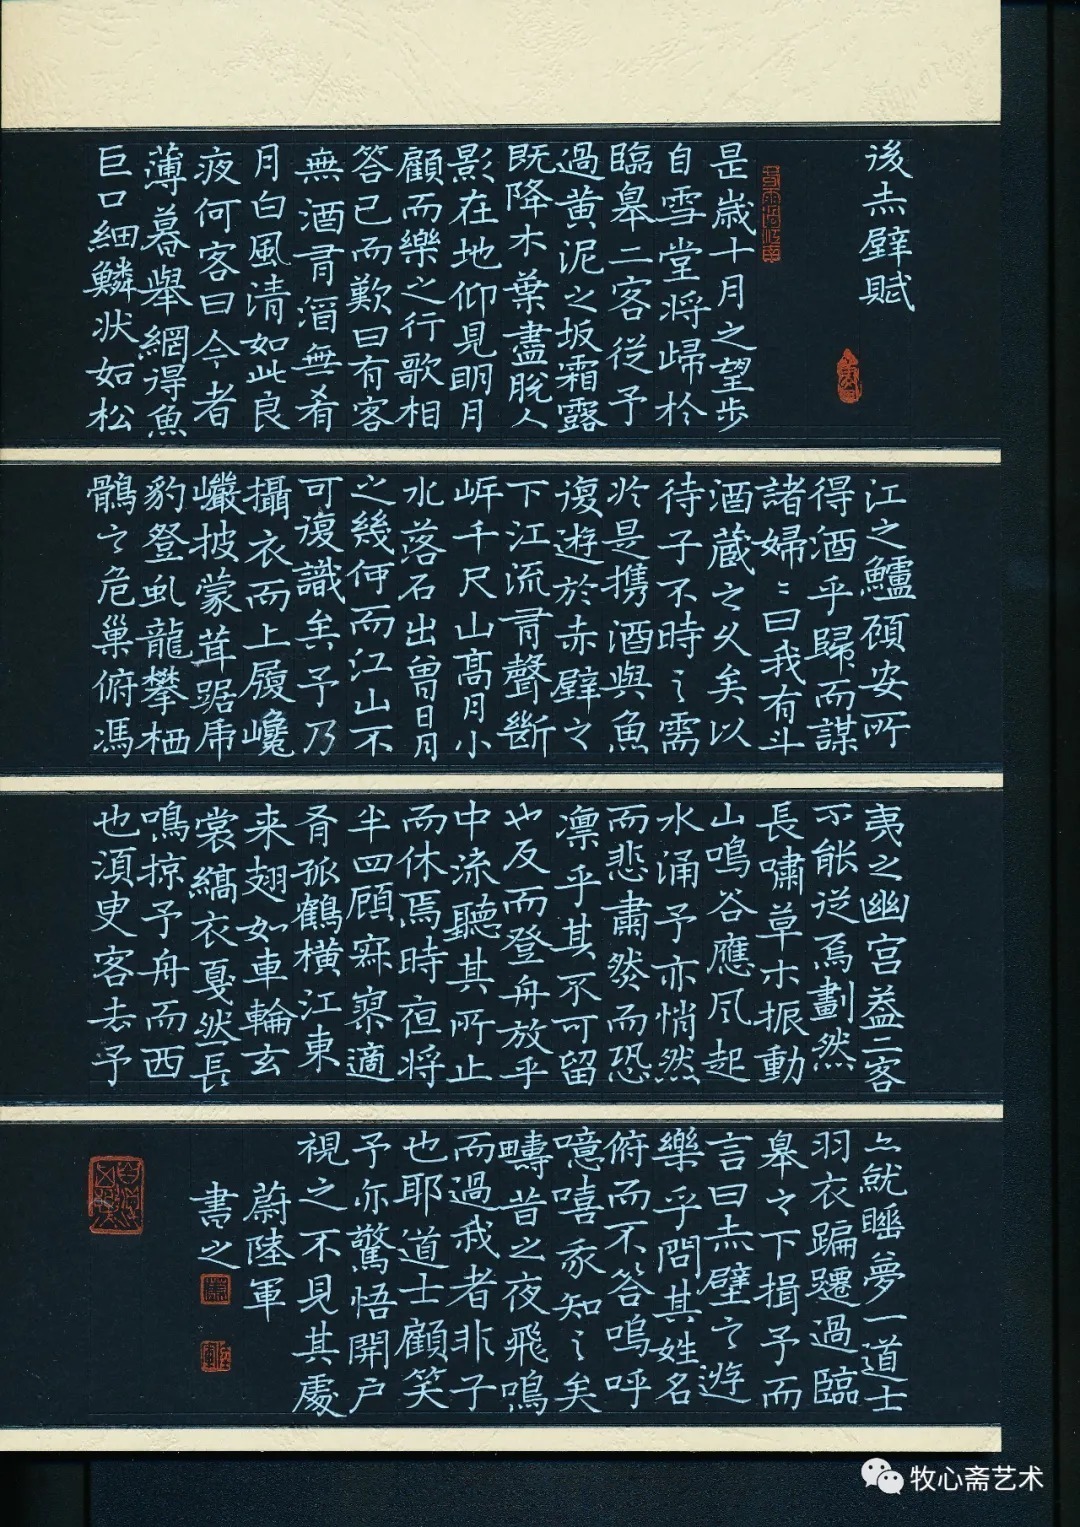 後赤壁賦
是歲十月之望步
自雪堂将歸於
臨皋二客從予
過黃泥之坂霜露
既降木葉盡脫人
影在地仰見明月
顧而樂之行歌相
答已而歎曰有客
無酒有酒無肴
月白風清如此良
夜何客曰今者
薄暮舉網得魚
巨口細鱗狀如松
江之鱸顧安所
得酒乎歸而謀
諸婦婦曰我有斗
酒藏之久矣以
待子不時之需
於是携酒與魚
復遊於赤壁之
下江流有聲斷
岸千尺山高月小
水落石出曾日月
之幾何而江山不
可復識矣予乃
攝衣而上履巉
巖披蒙茸踞虎
豹登虬龍攀栖
鶻之危巢俯馮
夷之幽宫益二客
不能從焉劃然
長嘯草木振動
山鳴谷應風起
水涌予亦悄然
而悲肅然而恐
凛乎其不可留
也反而登舟放乎
中流聽其所止
而休焉時夜将
半四顧寂寥適
有孤鶴橫江東
来翅如車輪玄
裳縞衣戛然長
鳴掠予舟而西
也須臾客去予
亦就睡夢一道士
羽衣蹁躚過臨
皋之下揖予而
言曰赤壁之遊
樂乎問其姓名
俯而不答嗚呼
噫嘻我知之矣
疇昔之夜飛鳴
而過我者非子
也耶道士顧笑
予亦驚悟開户
視之不見其處
蔚陸軍
書之
牧心斋艺术